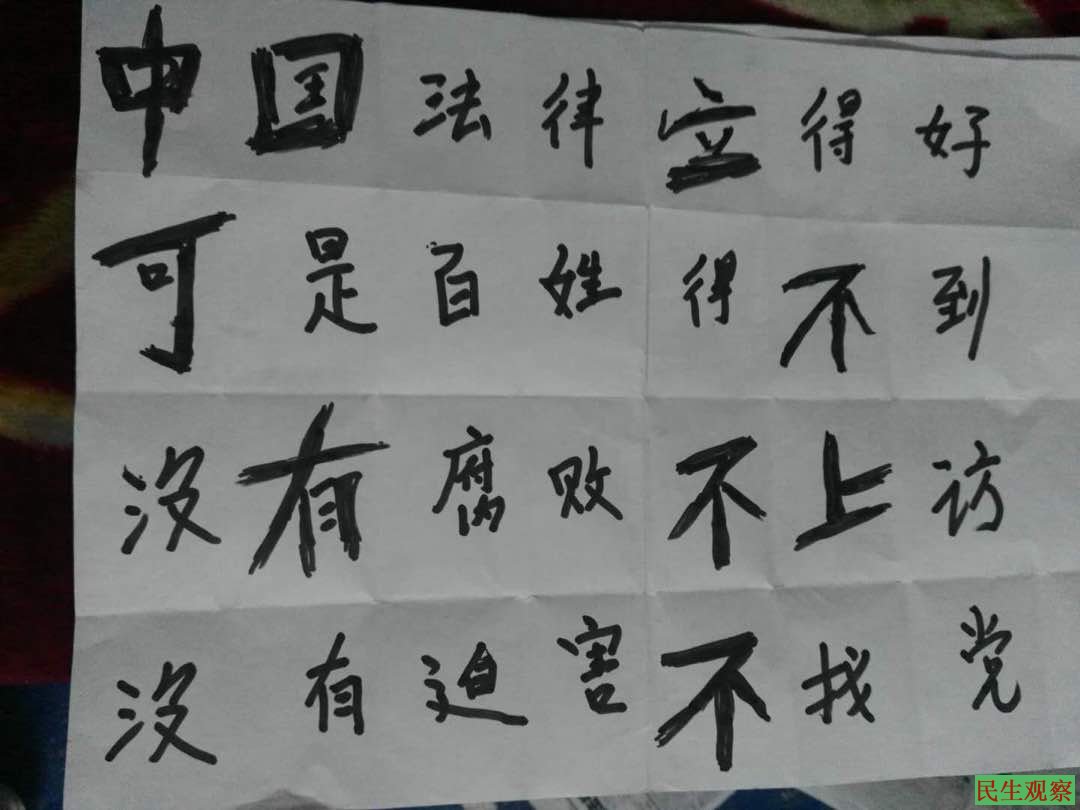 中国法律立得好
可是百姓得不到
没有腐败不上访
没有迫害不找党
民生观察